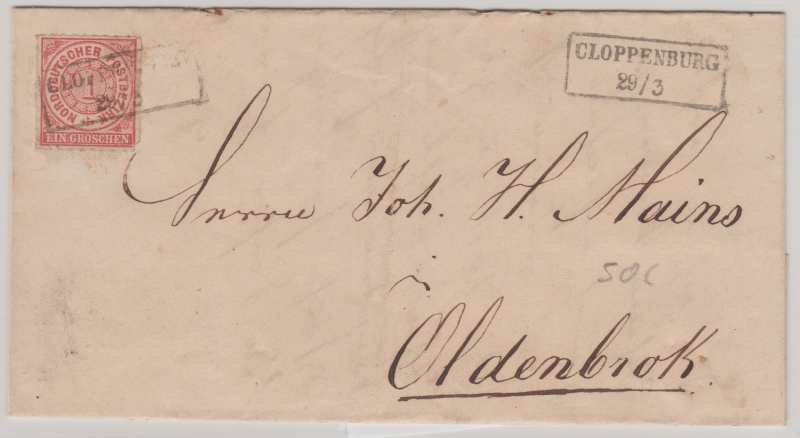 NORDDEUTSCHER POSTBEZIRK
1
EIN GROSCHEN
CLOPPENBURG
29/3
Herrn Joh. H. Mains
Oldenbrok.